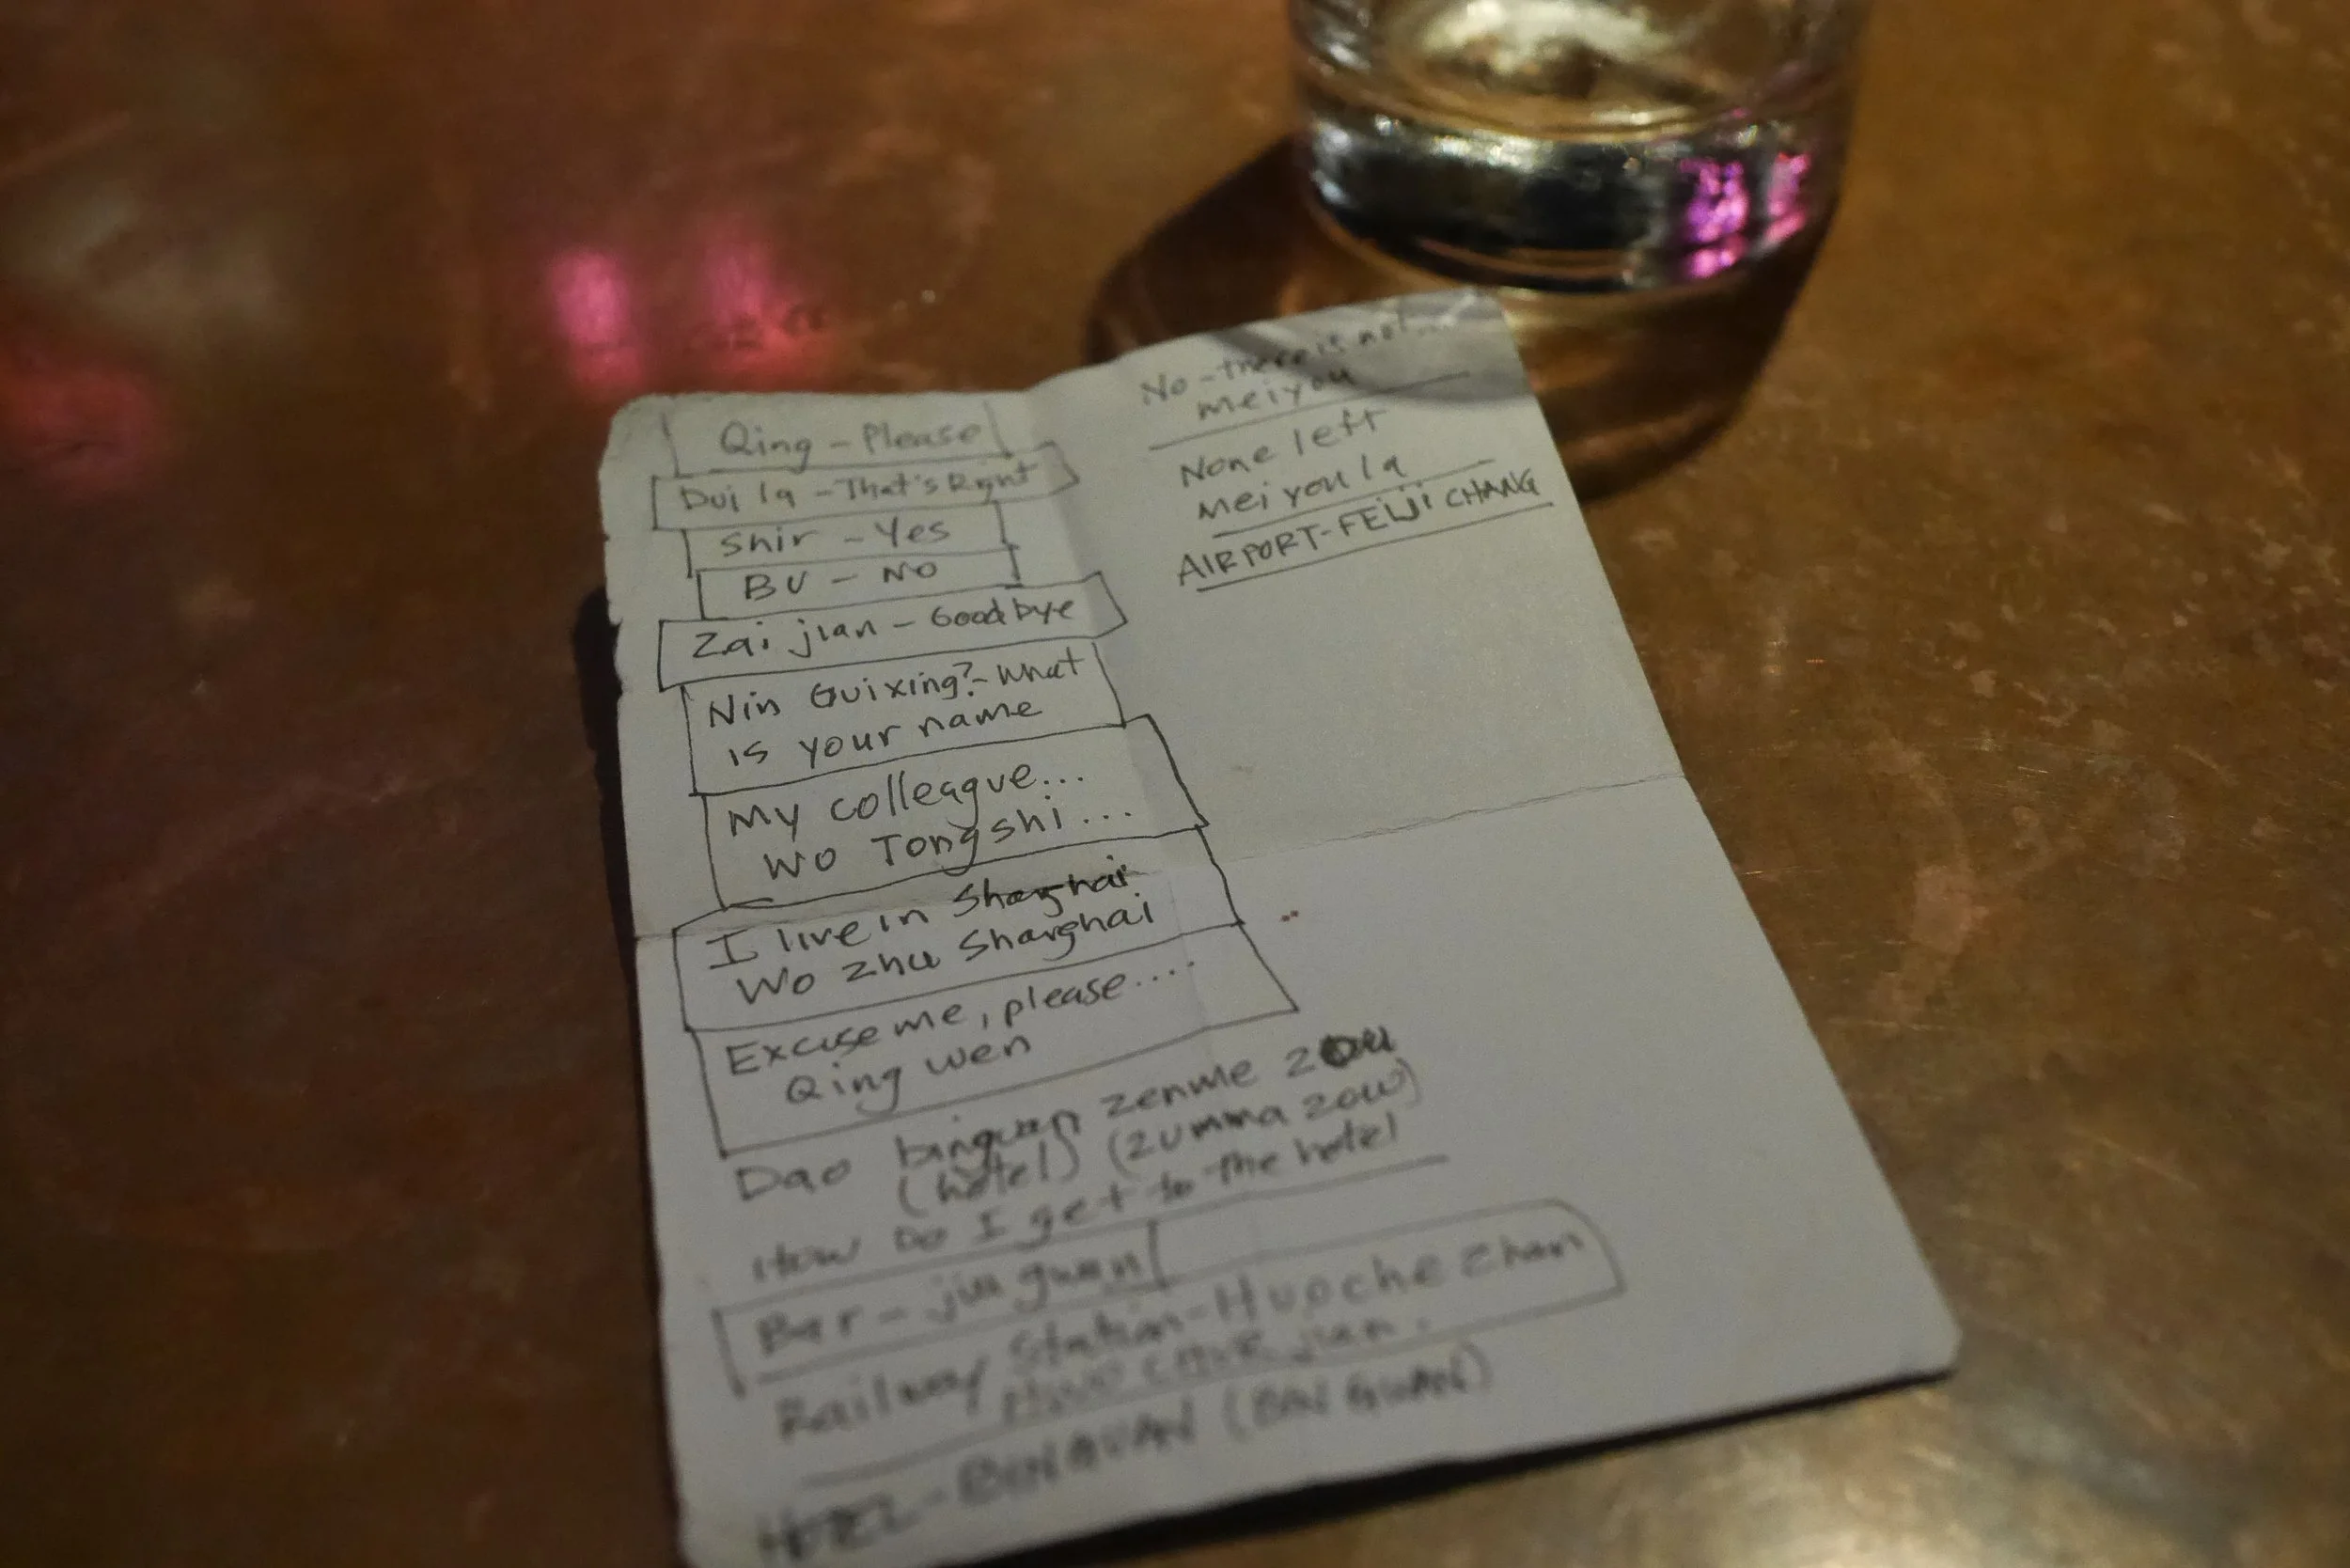 Qing - Please
Dui la - That's Right
Shir - Yes
BU - NO
Zai jian - Goodbye
Nin Guixing? - What
is your name
My colleague...
Wo Tongshi...
I live in Shanghai
Wo zhu Shanghai
Excuse me, please....
Qing wen
Dao binguan zenme zou
(hotel) (zumma zow)
How Do I get to the hotel
Bar - jiu guan
Railway Station - Huoche zhan
jian.
HOTEL - BINGUAN (BIN GUAN)
No - there is not...
meiyou
None left
Mei you la
AIRPORT - FEIJI CHANG